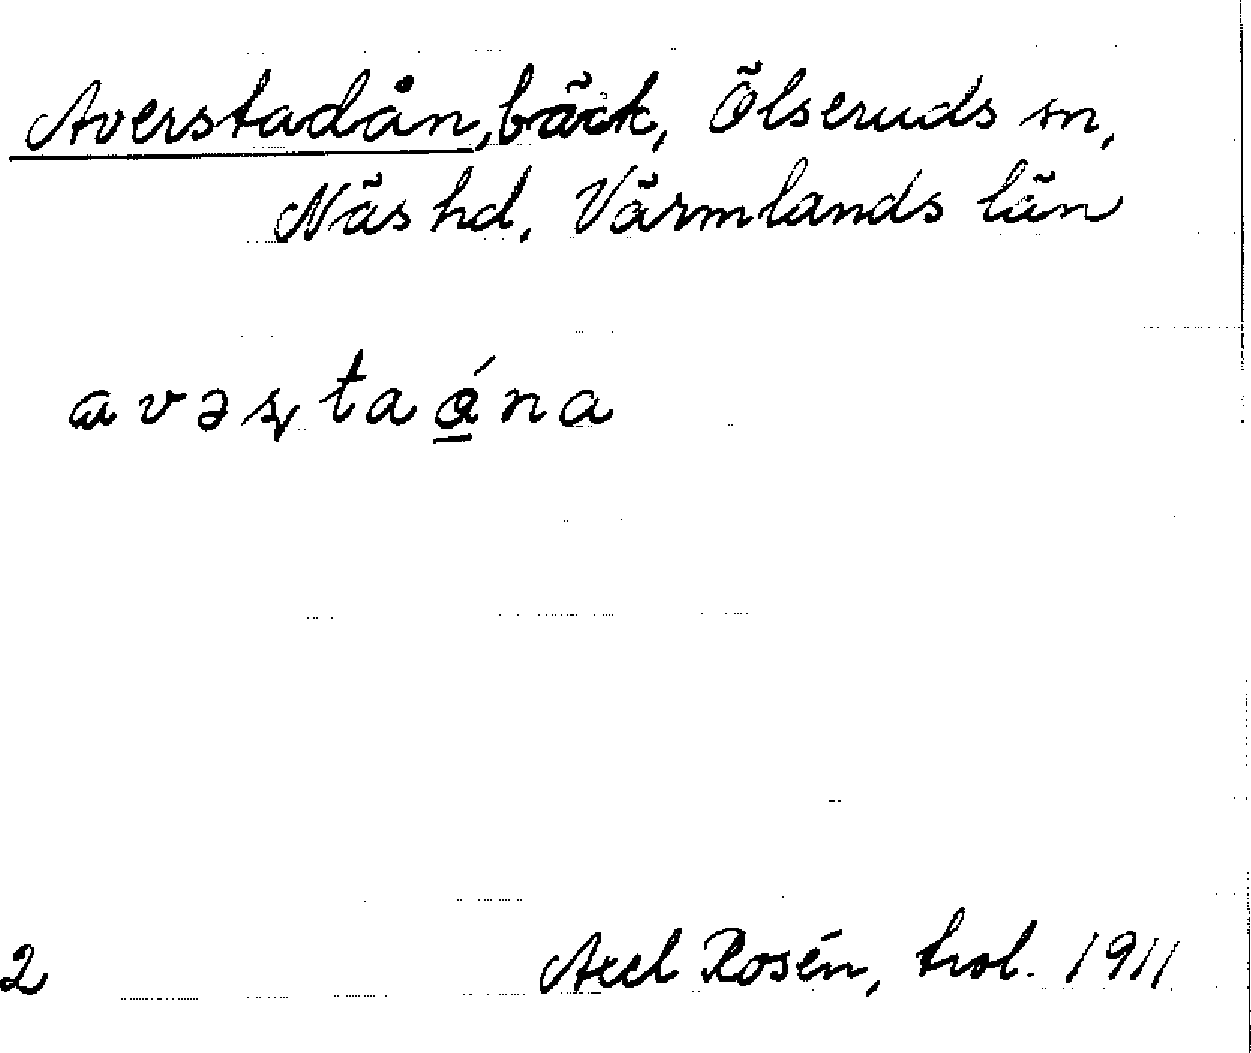 Averstadån, bäck, Ölseruds sn,
Näs hd, Värmlands län
avəʂtaǫ́na
2 Axel Rosén, trol. 1911